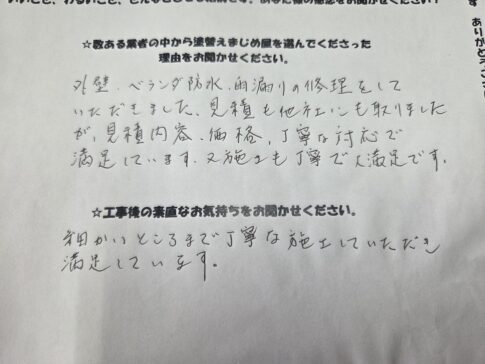 ☆数ある業者の中から塗替えまじめ屋を選んでくださった
理由をお聞かせください。
外壁、ベランダ防水、雨漏りの修理をして
いただきました。見積も他社にも取りました
が、見積内容、価格、丁寧な対応で
満足しています。又施工も丁寧で大満足です。
☆工事後の素直なお気持ちをお聞かせください。
細かいところまで丁寧な施工していただき
満足しています。